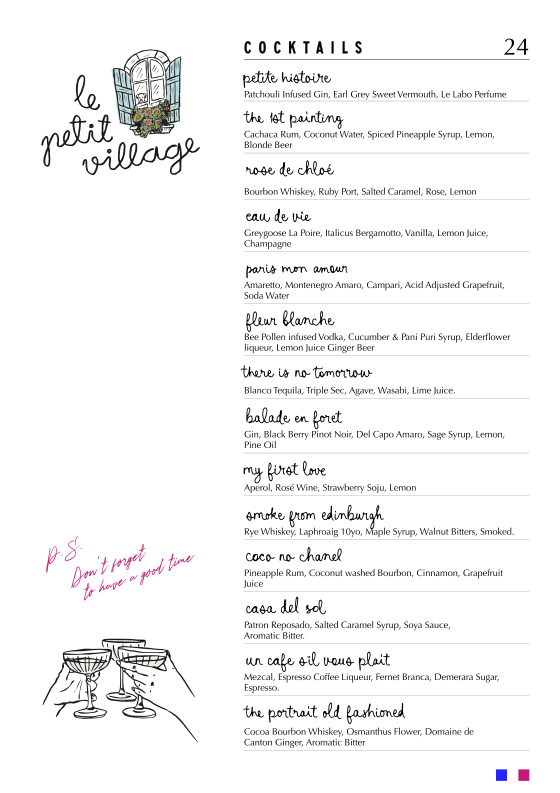 le
petit
village
COCKTAILS 24
petite histoire
Patchouli Infused Gin, Earl Grey Sweet Vermouth, Le Labo Perfume
the 1st painting
Cachaca Rum, Coconut Water, Spiced Pineapple Syrup, Lemon,
Blonde Beer
rose de chloé
Bourbon Whiskey, Ruby Port, Salted Caramel, Rose, Lemon
eau de vie
Greygoose La Poire, Italicus Bergamotto, Vanilla, Lemon Juice,
Champagne
paris mon amour
Amaretto, Montenegro Amaro, Campari, Acid Adjusted Grapefruit,
Soda Water
fleur blanche
Bee Pollen infused Vodka, Cucumber & Pani Puri Syrup, Elderflower
liqueur, Lemon Juice Ginger Beer
there is no tomorrow
Blanco Tequila, Triple Sec, Agave, Wasabi, Lime Juice.
balade en foret
Gin, Black Berry Pinot Noir, Del Capo Amaro, Sage Syrup, Lemon,
Pine Oil
my first love
Aperol, Rosé Wine, Strawberry Soju, Lemon
smoke from edinburgh
Rye Whiskey, Laphroaig 10yo, Maple Syrup, Walnut Bitters, Smoked.
coco no chanel
Pineapple Rum, Coconut washed Bourbon, Cinnamon, Grapefruit
Juice
casa del sol
Patron Reposado, Salted Caramel Syrup, Soya Sauce,
Aromatic Bitter.
un cafe sil vous plait
Mezcal, Espresso Coffee Liqueur, Fernet Branca, Demerara Sugar,
Espresso.
the portrait old fashioned
Cocoa Bourbon Whiskey, Osmanthus Flower, Domaine de
Canton Ginger, Aromatic Bitter
P.S.
Don't forget
to have a good time